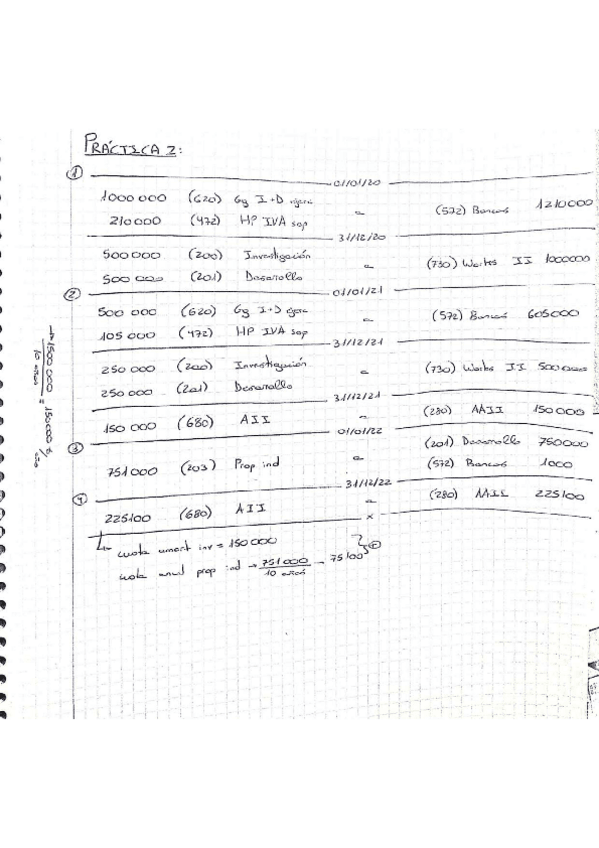 PRÁCTICA 2:
1
01/01/20
1000 000 (620) Gg I+D ejerc a (572) Bancos 1210000
210000 (472) HP IVA sop
31/12/20
500000 (200) Investigación a (730) Workes II 1000000
500 000 (201) Desarrollo
2
01/01/21
500 000 (620) Gg I+D ejerc a (572) Bancos 605000
105 000 (472) HP IVA sop
31/12/21
250 000 (200) Investigación a (730) Workes II 500000
250 000 (201) Desarrollo
31/12/21
150 000 (680) AII a (280) AAII 150 000
3
01/01/22
751 000 (203) Prop ind a (201) Desarrollo 750000
(572) Bancos 1000
4
31/12/22
225100 (680) AII a (280) AAII 225100
x
cuota amort inv = 150 000
cuota anual prop ind → 751 000 / 10 años → 75100
→ 1500 000 / 10 años = 150000 € / año